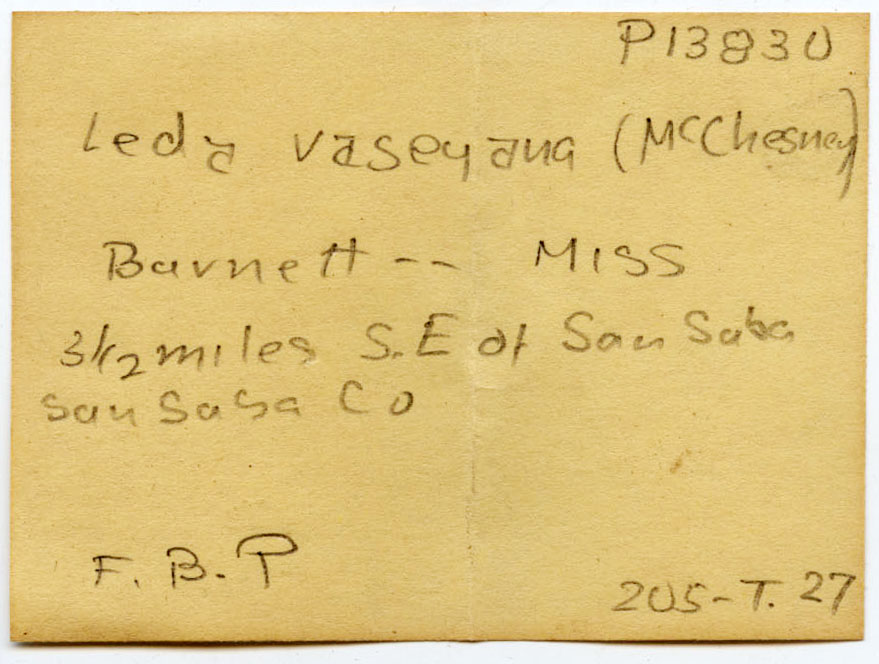 P13830
Leda vaseyana (McChesney)
Barnett -- Miss
3 1/2 miles S.E of San Saba
San Saba Co
F. B. P
205-T. 27